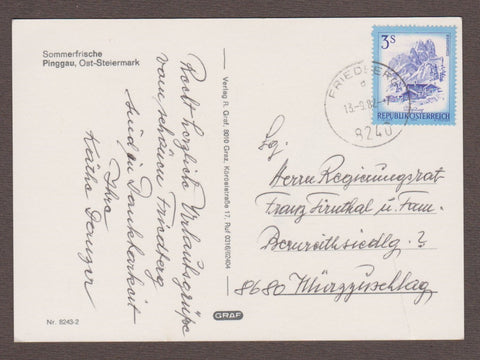 Sommerfrische
Pinggau, Ost-Steiermark
Recht herzliche Urlaubsgrüße
vom schönen Friedberg
sind in Dankbarkeit
Ihre
Käthe
Nr. 8243-2
Verlag R. Graf, 8010 Graz, Körösistraße 17, Ruf 0316/62404
GRAF
3S
REPUBLIK ÖSTERREICH
FRIEDBERG
13.-9.82.-
8240
Herrn Regierungsrat
Franz u. Fam.
8680 Mürzzuschlag